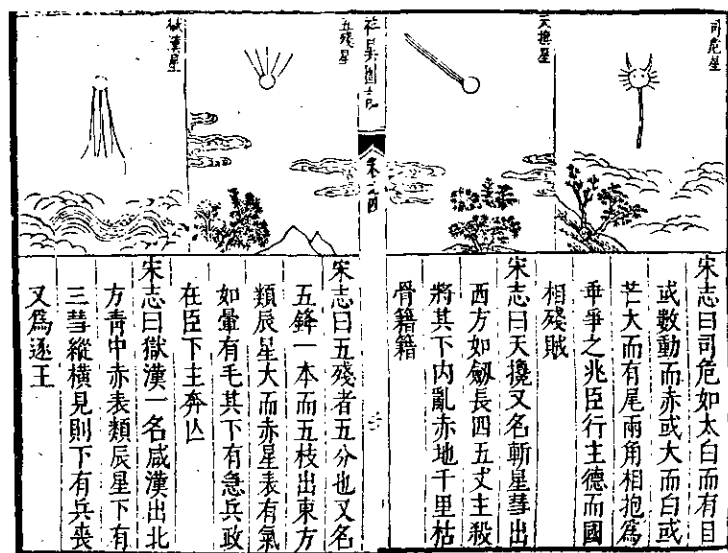 司危星
宋志曰司危如太白而有目
或數動而赤或大而白或
芒大而有尾兩角相抱爲
乖爭之兆臣行主德而國
相殘賊
天攙星
宋志曰天攙又名斬星彗出
西方如劒長四五丈主殺
將其下內亂赤地千里枯
骨籍籍
祥異圖
卷之四
五殘星
宋志曰五殘者五分也又名
五鋒一本而五枝出東方
類辰星大而赤星表有氣
如暈有毛其下有急兵政
在臣下主奔亾
獄漢星
宋志曰獄漢一名咸漢出北
方靑中赤表類辰星下有
三彗縱橫見則下有兵喪
又爲逐王